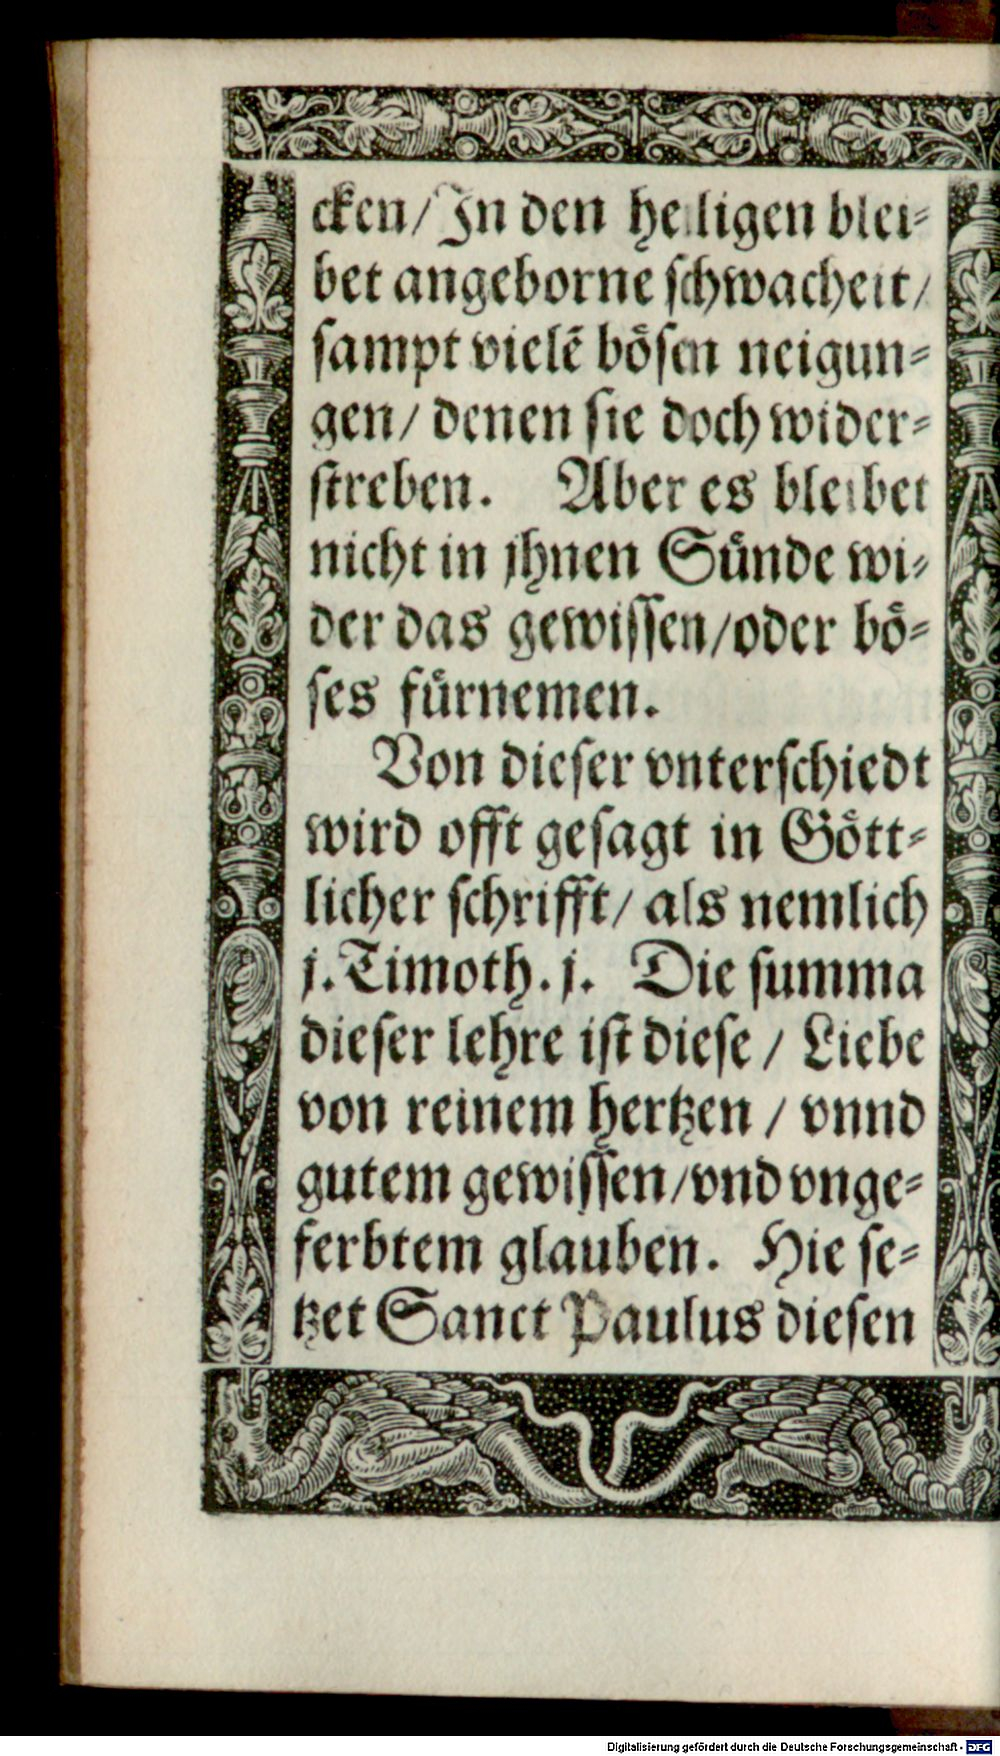 cken/ In den heiligen blei-
bet angeborne schwacheit/
sampt vielē bösen neigun-
gen/ denen sie doch wider-
streben. Aber es bleibet
nicht in jhnen Sünde wi-
der das gewissen/oder bö-
ses fürnemen.
Von dieser vnterschiedt
wird offt gesagt in Gött-
licher schrifft/ als nemlich
j. Timoth. j. Die summa
dieser lehre ist diese/ Liebe
von reinem hertzen/ vnnd
gutem gewissen/vnd vnge-
ferbtem glauben. Hie se-
tzet Sanct Paulus diesen
Digitalisierung gefördert durch die Deutsche Forschungsgemeinschaft - DFG